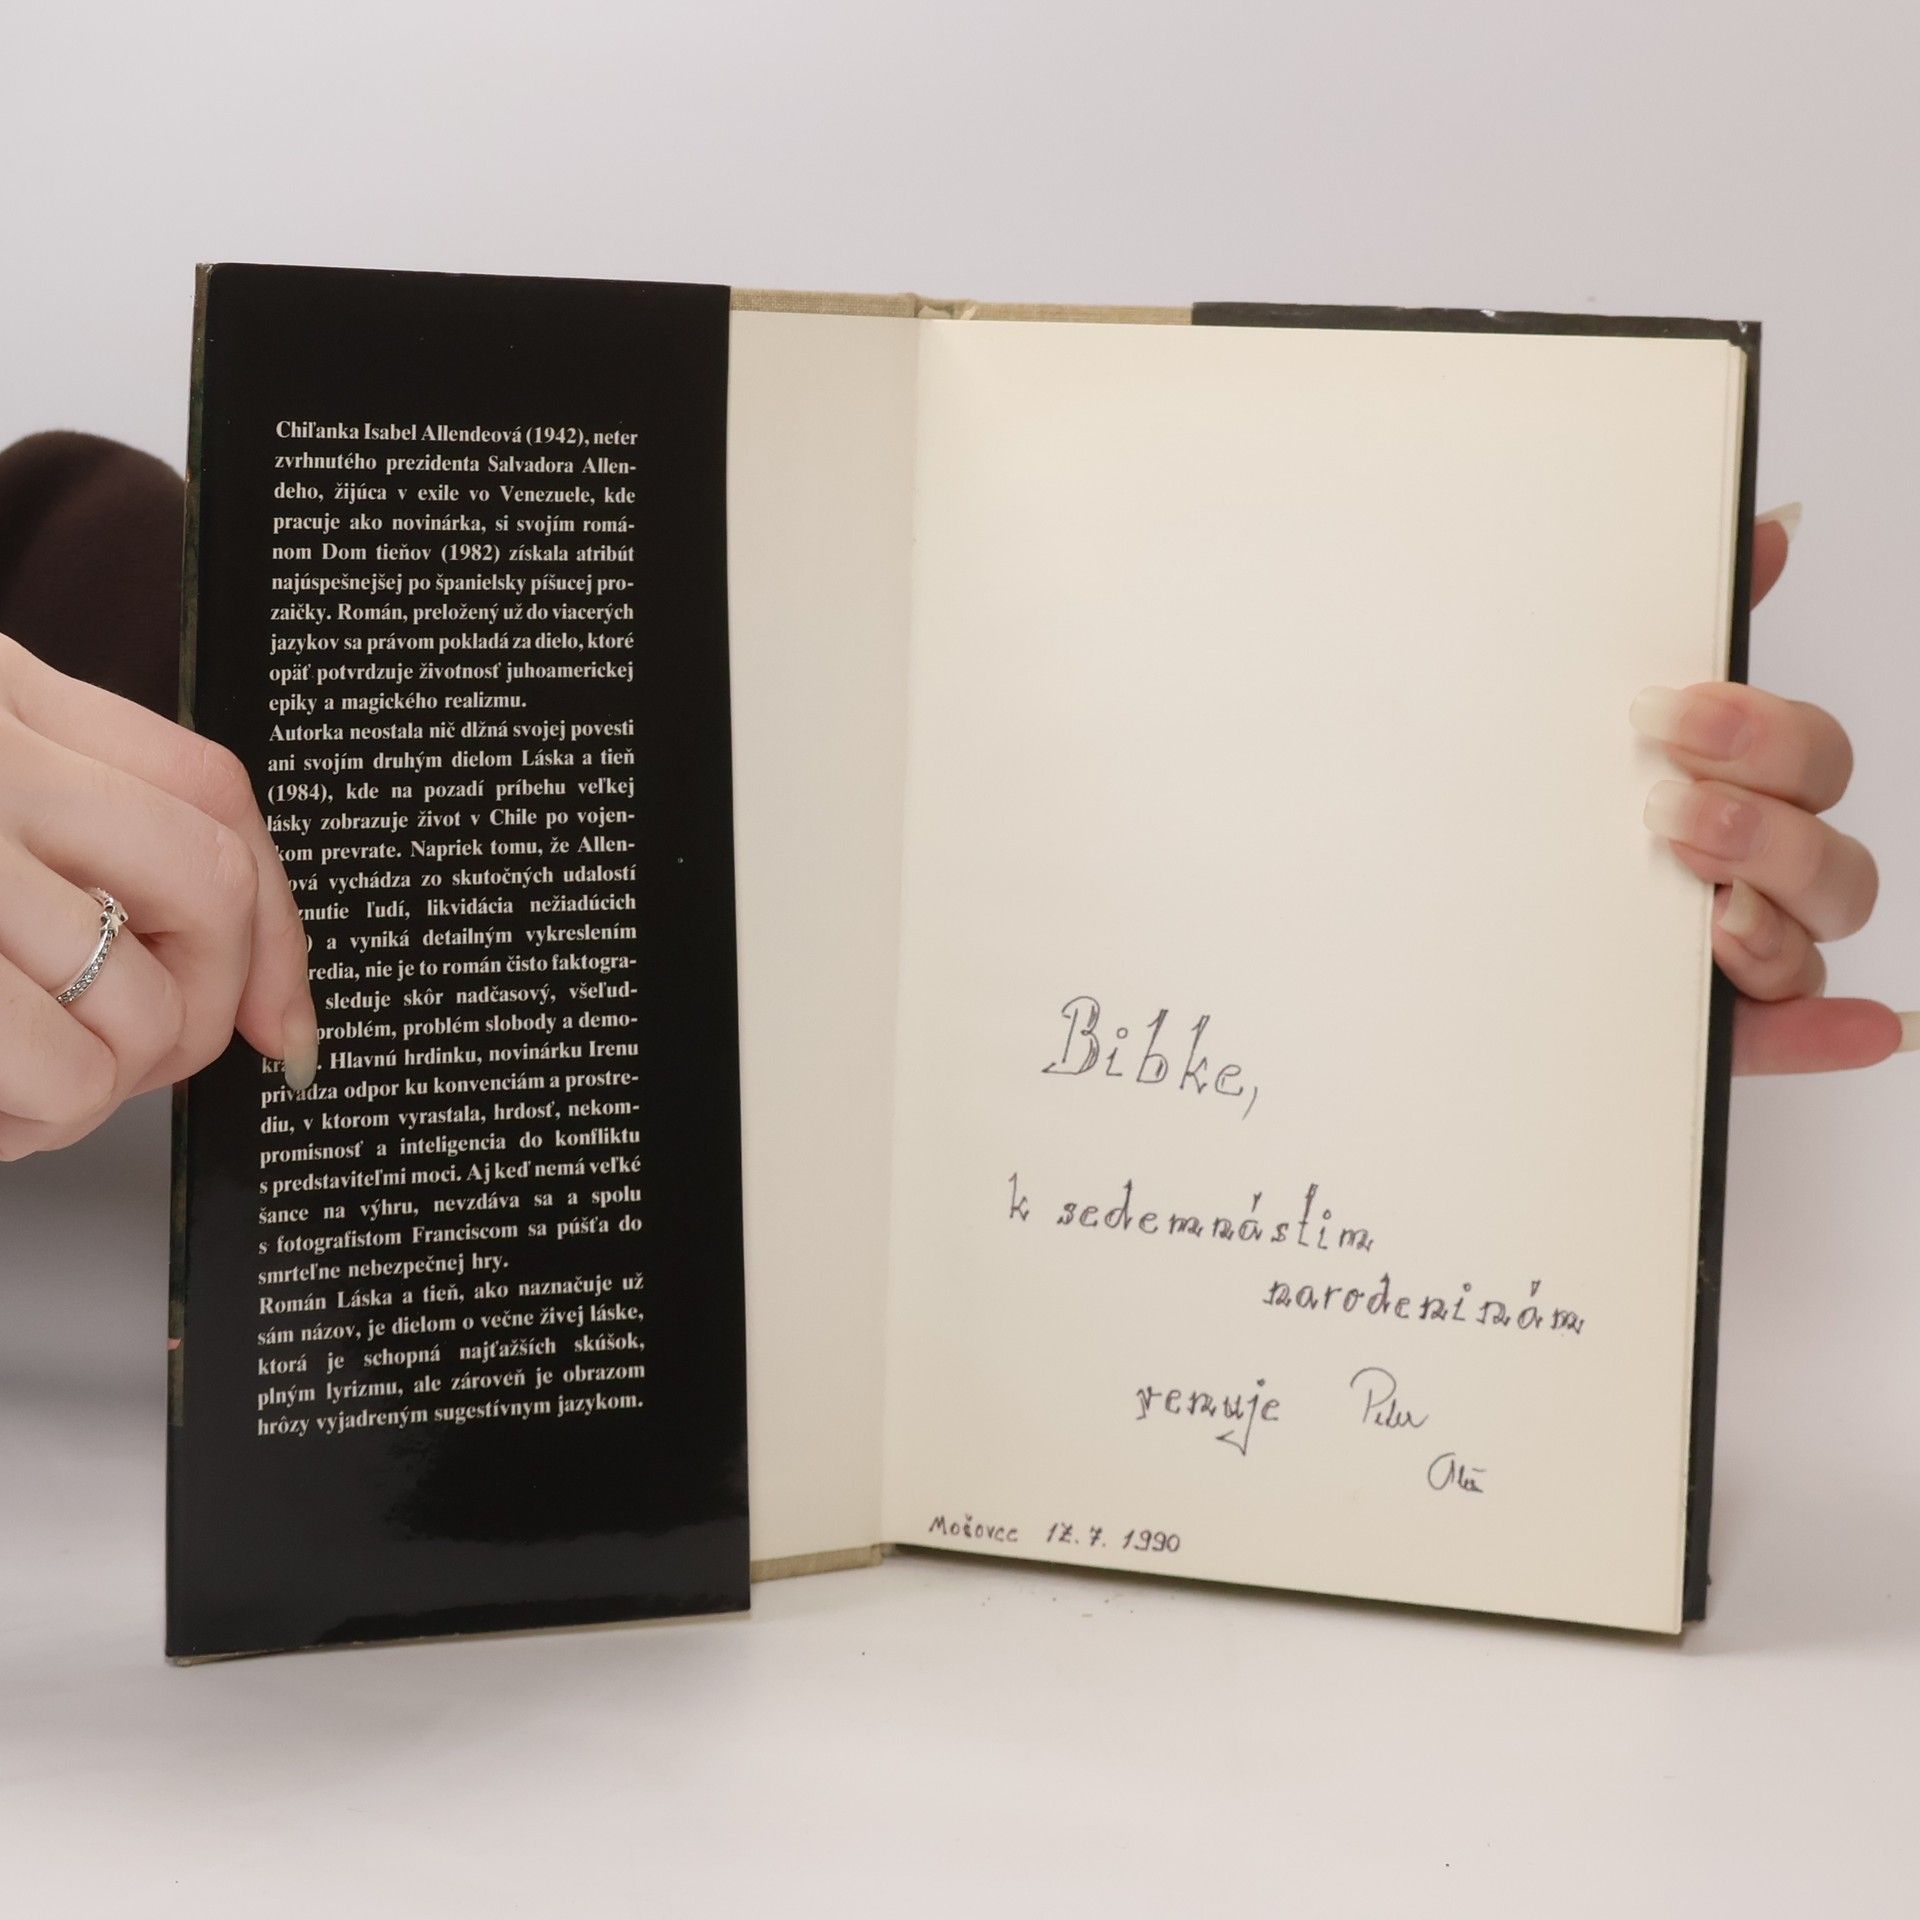 Chiľanka Isabel Allendeová (1942), neter
zvrhnutého prezidenta Salvadora Allen-
deho, žijúca v exile vo Venezuele, kde
pracuje ako novinárka, si svojím romá-
nom Dom tieňov (1982) získala atribút
najúspešnejšej po španielsky píšucej pro-
zaičky. Román, preložený už do viacerých
jazykov sa právom pokladá za dielo, ktoré
opäť potvrdzuje životnosť juhoamerickej
epiky a magického realizmu.
Autorka neostala nič dlžná svojej povesti
ani svojím druhým dielom Láska a tieň
(1984), kde na pozadí príbehu veľkej
lásky zobrazuje život v Chile po vojen-
kom prevrate. Napriek tomu, že Allen-
ová vychádza zo skutočných udalostí
znutie ľudí, likvidácia nežiadúcich
) a vyniká detailným vykreslením
redia, nie je to román čisto faktogra-
sleduje skôr nadčasový, všeľud-
problém, problém slobody a demo-
kra . Hlavnú hrdinku, novinárku Irenu
privádza odpor ku konvenciám a prostre-
diu, v ktorom vyrastala, hrdosť, nekom-
promisnosť a inteligencia do konfliktu
s predstaviteľmi moci. Aj keď nemá veľké
šance na výhru, nevzdáva sa a spolu
s fotografistom Franciscom sa púšťa do
smrteľne nebezpečnej hry.
Román Láska a tieň, ako naznačuje už
sám názov, je dielom o večne živej láske,
ktorá je schopná najťažších skúšok,
plným lyrizmu, ale zároveň je obrazom
hrôzy vyjadreným sugestívnym jazykom.
Bibke,
k sedemnástim
narodeninám
venuje Peter
Mošovce 17. 7. 1990